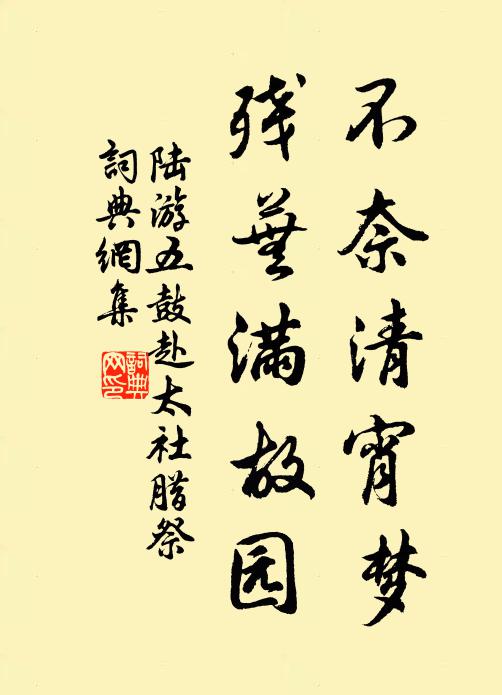 不奈清宵梦
残芜满故园
陆游五鼓赴太社腊祭
詞典網集
詞典
网印